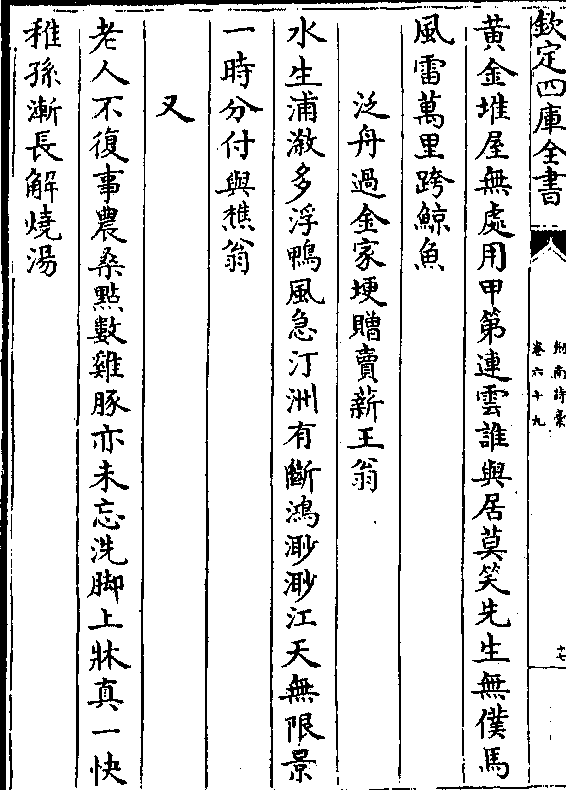 欽定四庫全書
劒南詩稾
卷六十九
十七
黃金堆屋無處用甲第連雲誰與居莫笑先生無僕馬
風雷萬里跨鯨魚
泛舟過金家埂贈賣薪王翁
水生浦漵多浮鴨風急汀洲有斷鴻渺渺江天無限景
一時分付與樵翁
又
老人不復事農桑點數雞豚亦未忘洗脚上牀真一快
稚孫漸長解燒湯